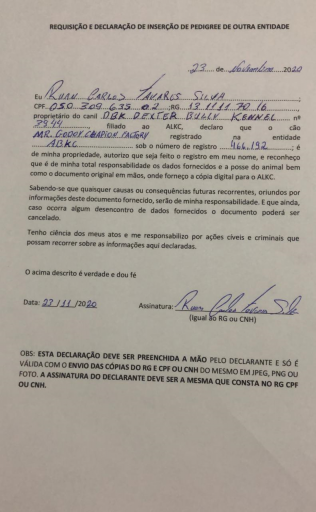 REQUISIÇÃO E DECLARAÇÃO DE INSERÇÃO DE PEDIGREE DE OUTRA ENTIDADE
23 de Novembro 2020
Eu Ruan Carlos Tavares Silva
CPF 050 309 635 02 RG 13 11 11 70 16
proprietário do canil DBK DEXTER BULLY KENNEL nº
7944, filiado ao ALKC, declaro que o cão
MR. GODOY CHAMPION FACTORY registrado na entidade
ABKC sob o número de registro 466.192; é
de minha propriedade, autorizo que seja feito o registro em meu nome, e reconheço
que é de minha total responsabilidade os dados fornecidos e a posse do animal bem
como o documento original em mãos, onde forneço a cópia digital para o ALKC.
Sabendo-se que quaisquer causas ou consequências futuras recorrentes, oriundos por
informações deste documento fornecido, serão de minha responsabilidade. E que ainda,
caso ocorra algum desencontro de dados fornecidos o documento poderá ser
cancelado.
Tenho ciência dos meus atos e me responsabilizo por ações cíveis e criminais que
possam recorrer sobre as informações aqui declaradas.
O acima descrito é verdade e dou fé
Data: 23/11/2020 Assinatura: Ruan Carlos Tavares Silva
(Igual ao RG ou CNH)
OBS: ESTA DECLARAÇÃO DEVE SER PREENCHIDA A MÃO PELO DECLARANTE E SÓ É
VÁLIDA COM O ENVIO DAS CÓPIAS DO RG E CPF OU CNH DO MESMO EM JPEG, PNG OU
FOTO. A ASSINATURA DO DECLARANTE DEVE SER A MESMA QUE CONSTA NO RG CPF
OU CNH.